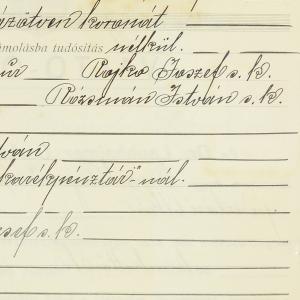 ázötven koronát
ámolásba tudósítás nélkül.
Rojko József s. k.
Rózsmán István s. k.
tván
karékpénztár"-nál.
ózsef s. k.